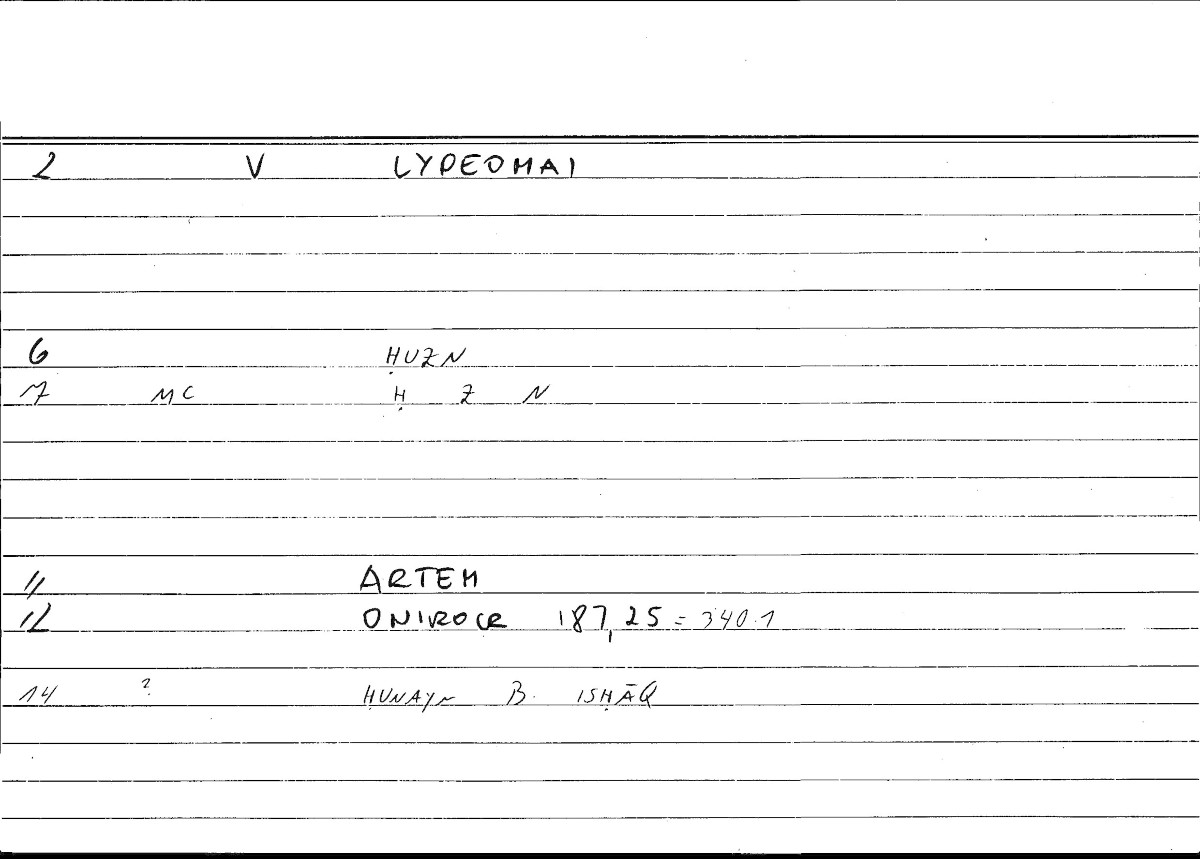 2 V LYPEOMAI
6 ḤUZN
7 MC Ḥ Z N
11 ARTEM
12 ONIROCR 187,25 = 340.1
14 ? ḤUNAYN B. ISḤĀQ